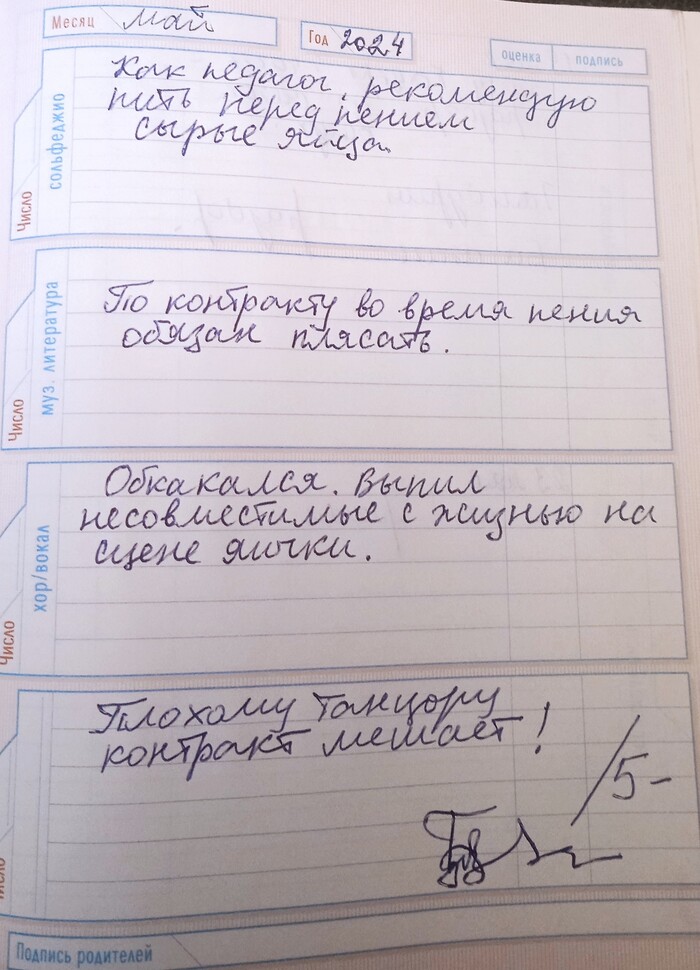 Месяц май Год 2024
оценка подпись
Число сольфеджио
Как педагог, рекомендую
пить перед пением
сырые яйца.
Число муз. литература
По контракту во время пения
обязан плясать.
Число хор/вокал
Обкакался. Выпил
несовместимые с жизнью на
сцене яички.
Число
Плохому танцору
контракт мешает!
/5-
Подпись родителей